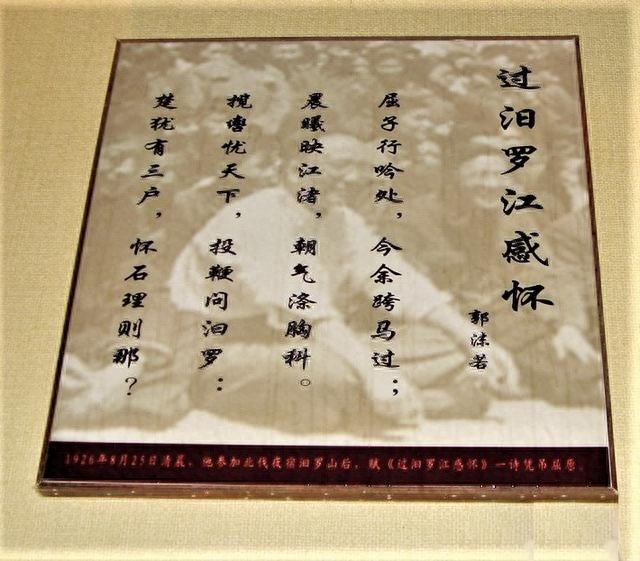 过汨罗江感怀
郭沫若
屈子行吟处，今余跨马过；
晨曦映江渚，朝气涤胸科。
揽辔忧天下，投鞭问汨罗：
楚犹有三户，怀石理则那？
1926年8月25日清晨，他参加北伐夜宿汨罗山后，赋《过汨罗江感怀》一诗凭吊屈原。